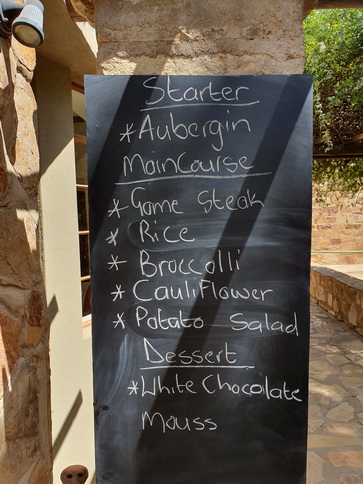 Starter
* Aubergin
Main Course
* Game Steak
* Rice
* Broccolli
* Cauliflower
* Potato Salad
Dessert
* White Chocolate
Mouss